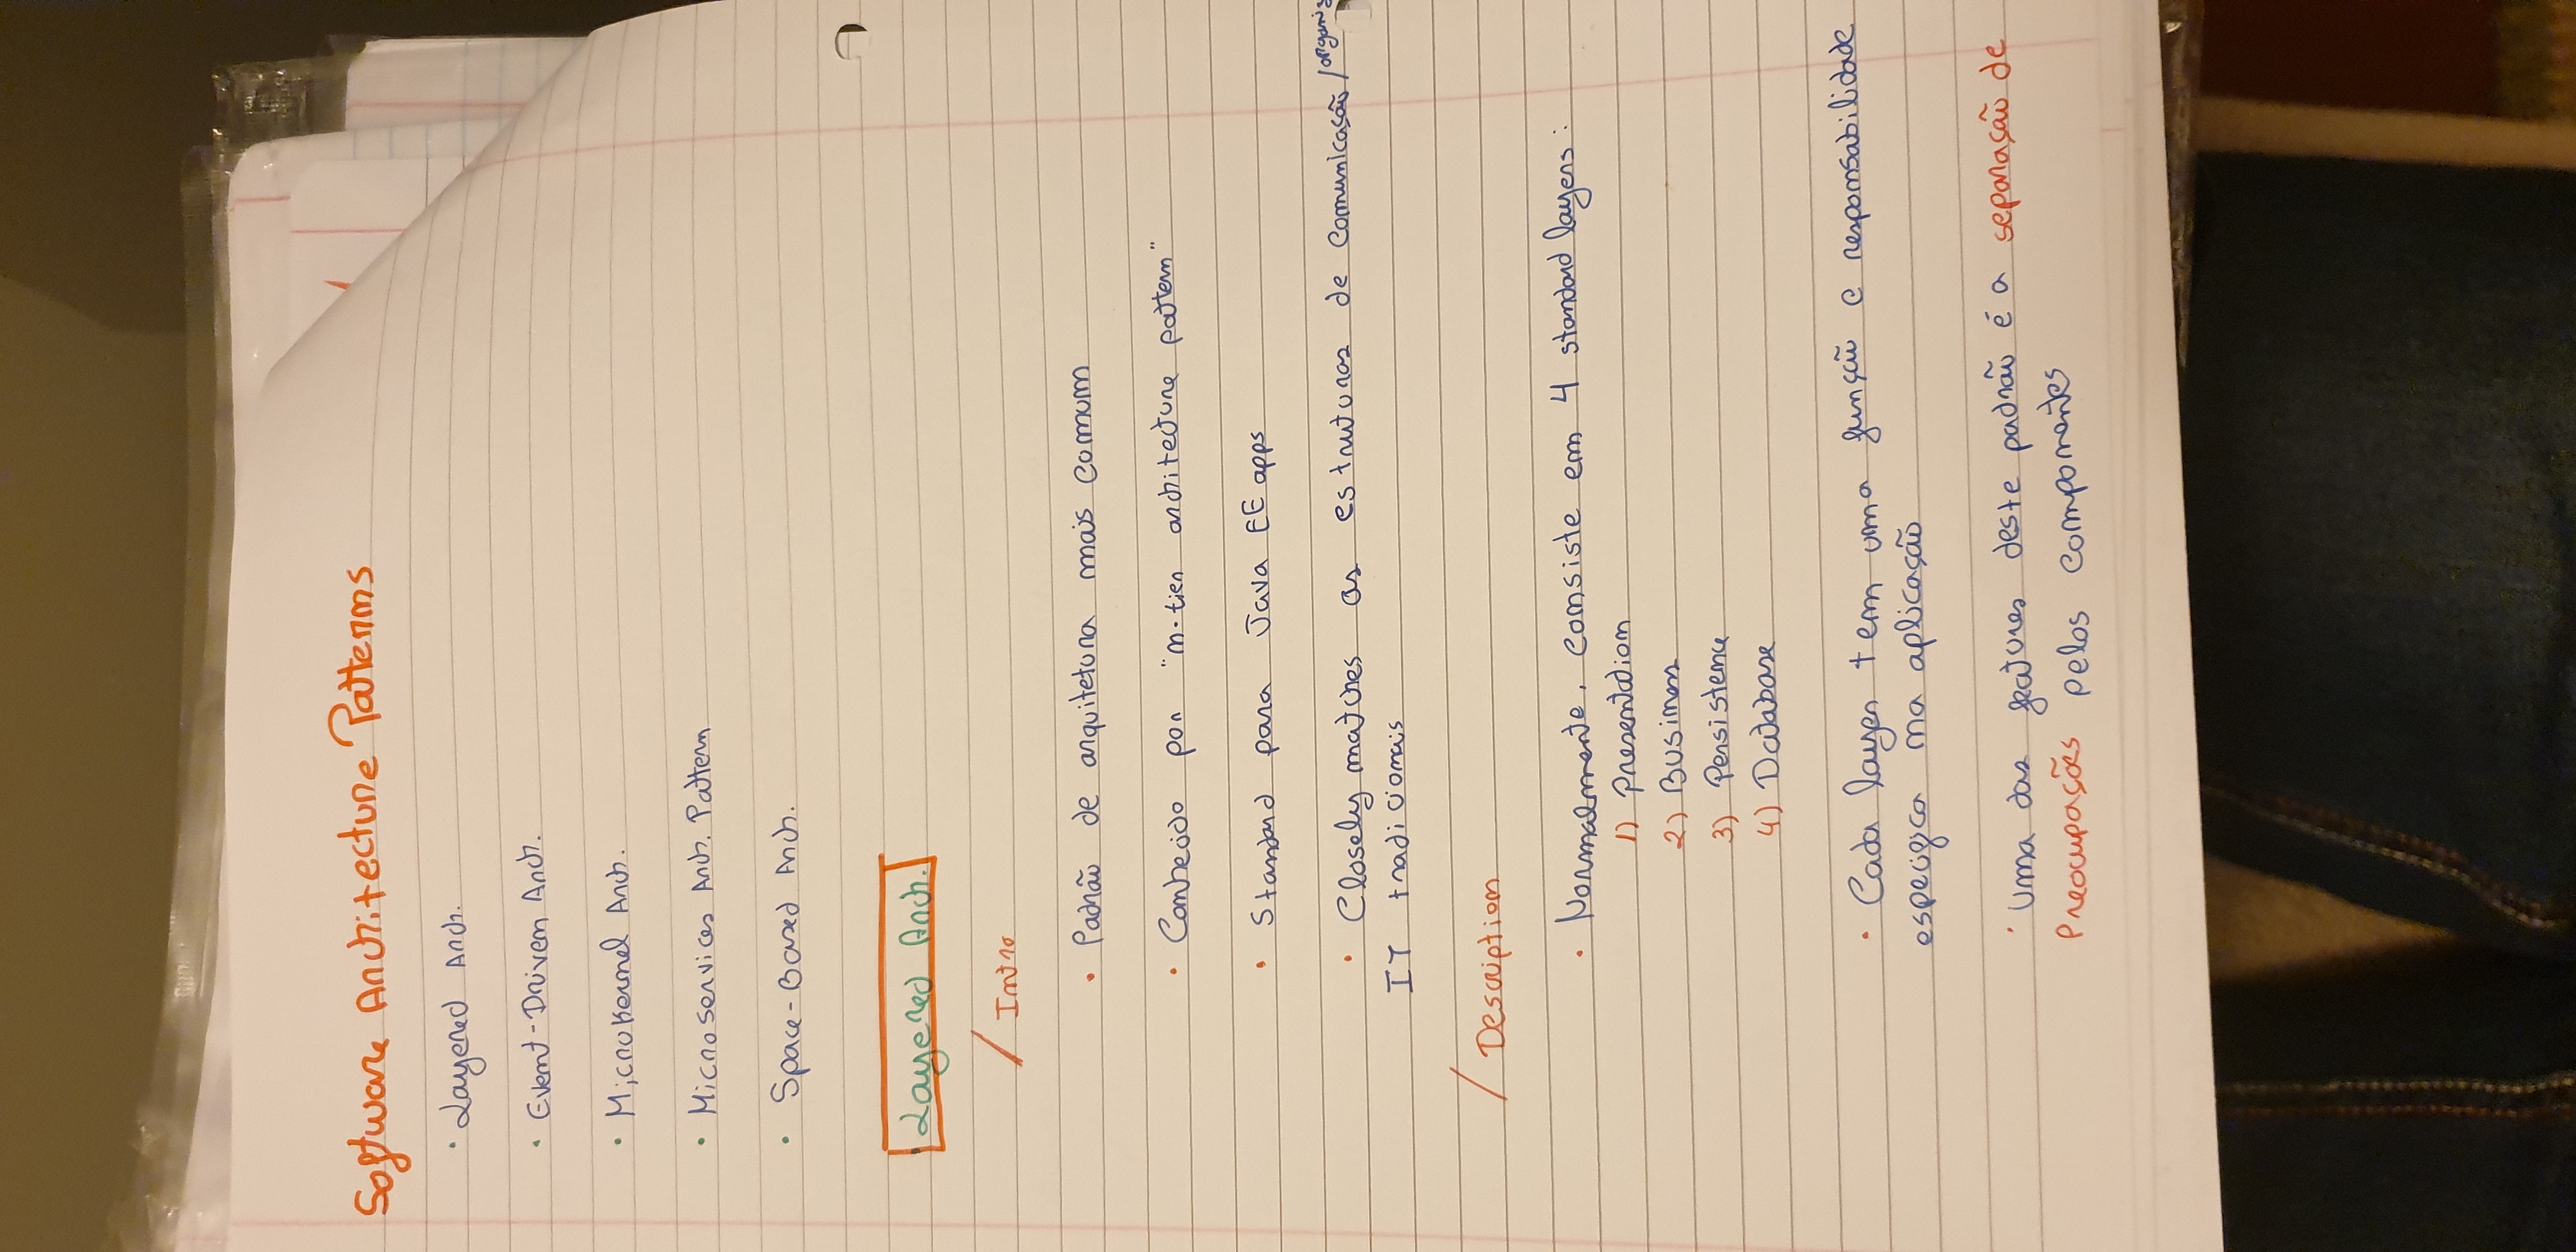 Software Architecture Patterns
· Layered Arch.
· Event-Driven Arch.
· Microkernel Arch.
· Microservices Arch. Pattern
· Space-Based Arch.
Layered Arch.
/ Intro
· Padrão de arquitetura mais comum
· Conhecido por "n-tier architecture pattern"
· Standard para Java EE apps
· Closely matches as estruturas de comunicação /
IT tradicionais
/ Description
· Normalmente, consiste em 4 standard layers:
1) Presentation
2) Business
3) Persistence
4) Database
· Cada layer tem uma função e responsabilidade
especifica na aplicação
· Uma das features deste padrão é a separação de
Preocupações pelos componentes